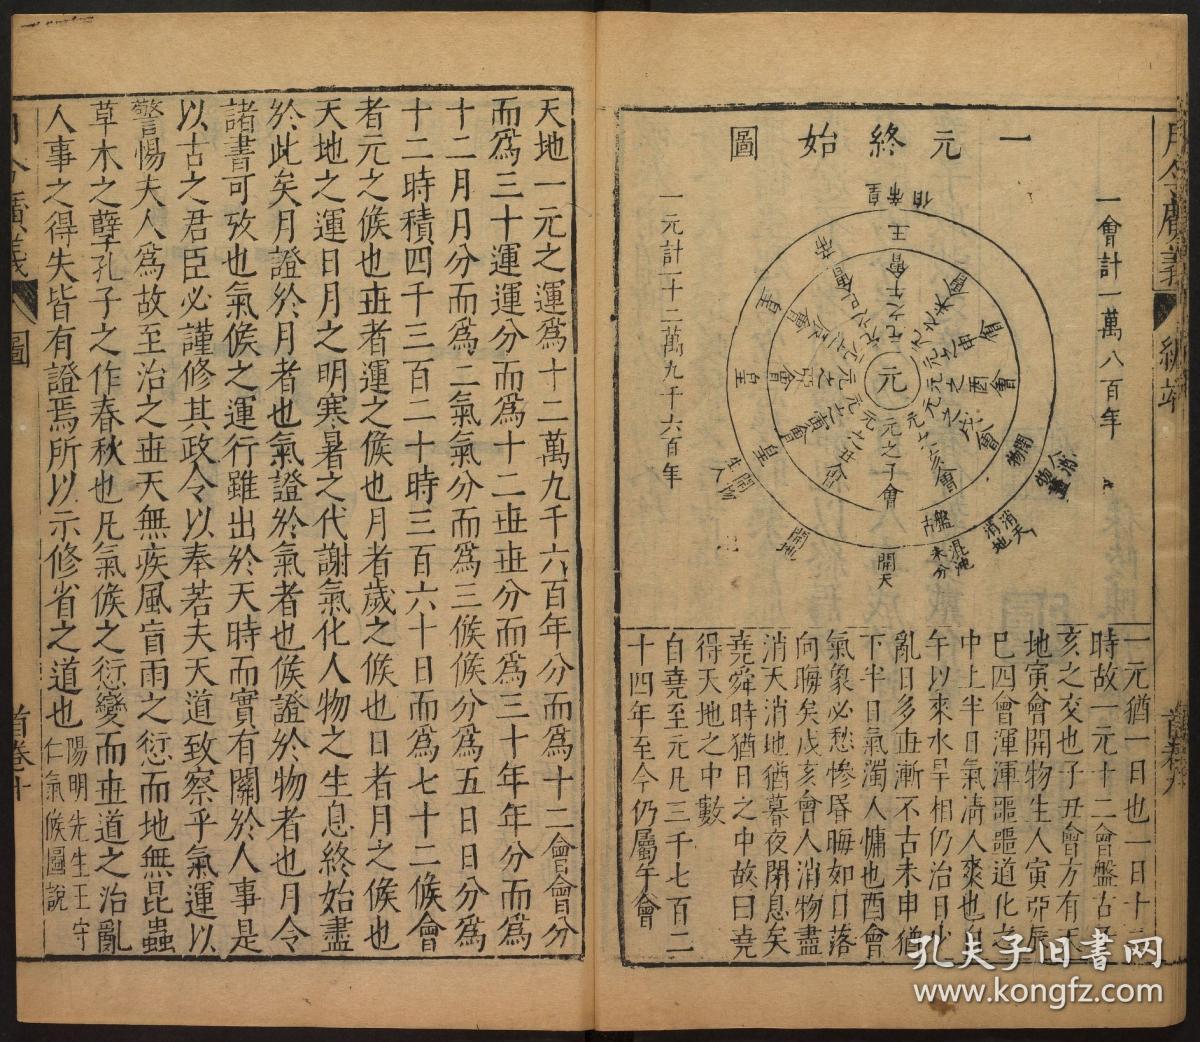 一元終始圖
一會計一萬八百年
一元計一十二萬九千六百年
元
元之子會
元之丑會
元之寅會
元之卯會
元之辰會
元之巳會
元之午會
元之未會
元之申會
元之酉會
元之戌會
元之亥會
王
帝
皇
皇
皇
開天
開地
開物
生人
閉物
消天
消地
混沌
未分
盤古
一元猶一日也一日十二
時故一元十二會盤古
亥之交也子丑會方有天
地寅會開物生人寅卯辰
巳四會渾渾噩噩道化之
中上半日氣清人爽也自
午以來水旱相仍治日少
亂日多世漸不古未申猶
下半日氣濁人慵也酉會
氣象必愁慘昏晦如日落
向晦矣戌亥會人消物盡
消天消地猶暮夜閉息矣
堯舜時猶日之中故曰堯
得天地之中數
自堯至元凡三千七百二
十四年至今仍屬午會
月令廣義
首卷九
天地一元之運爲十二萬九千六百年分而爲十二會會分
而爲三十運運分而爲十二世世分而爲三十年年分而爲
十二月月分而爲二氣氣分而爲三候候分爲五日日分爲
十二時積四千三百二十時三百六十日而爲七十二候會
者元之候也世者運之候也月者歲之候也日者月之候也
天地之運日月之明寒暑之代謝氣化人物之生息終始盡
於此矣月證於月者也氣證於氣者也候證於物者也月令
諸書可攷也氣候之運行雖出於天時而實有關於人事是
以古之君臣必謹修其政令以奉若夫天道致察乎氣運以
警惕夫人爲故至治之世天無疾風盲雨之愆而地無昆蟲
草木之孽孔子之作春秋也凡氣候之愆變而世道之治亂
人事之得失皆有證焉所以示修省之道也
陽明先生王守
仁氣候圖說
月令廣義
圖
首卷十
孔夫子旧书网
www.kongfz.com